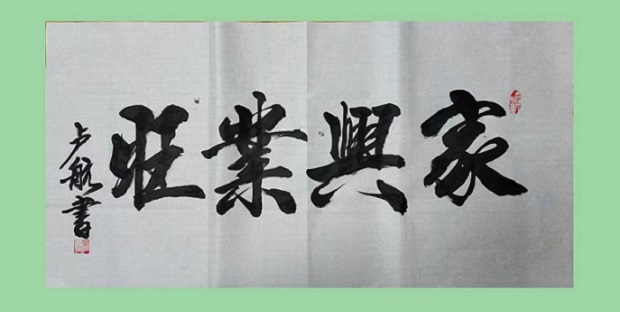 家興業旺
卢航書